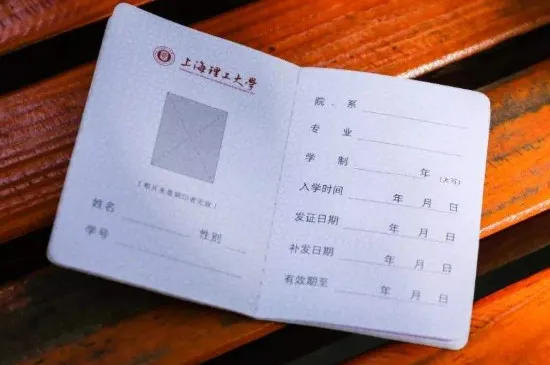 上海理工大学
(相片未盖钢印者无效)
姓名 性别
学号
院、系
专业
学制 年 (大写)
入学时间 年 月 日
发证日期 年 月 日
补发日期 年 月 日
有效期至 年 月 日